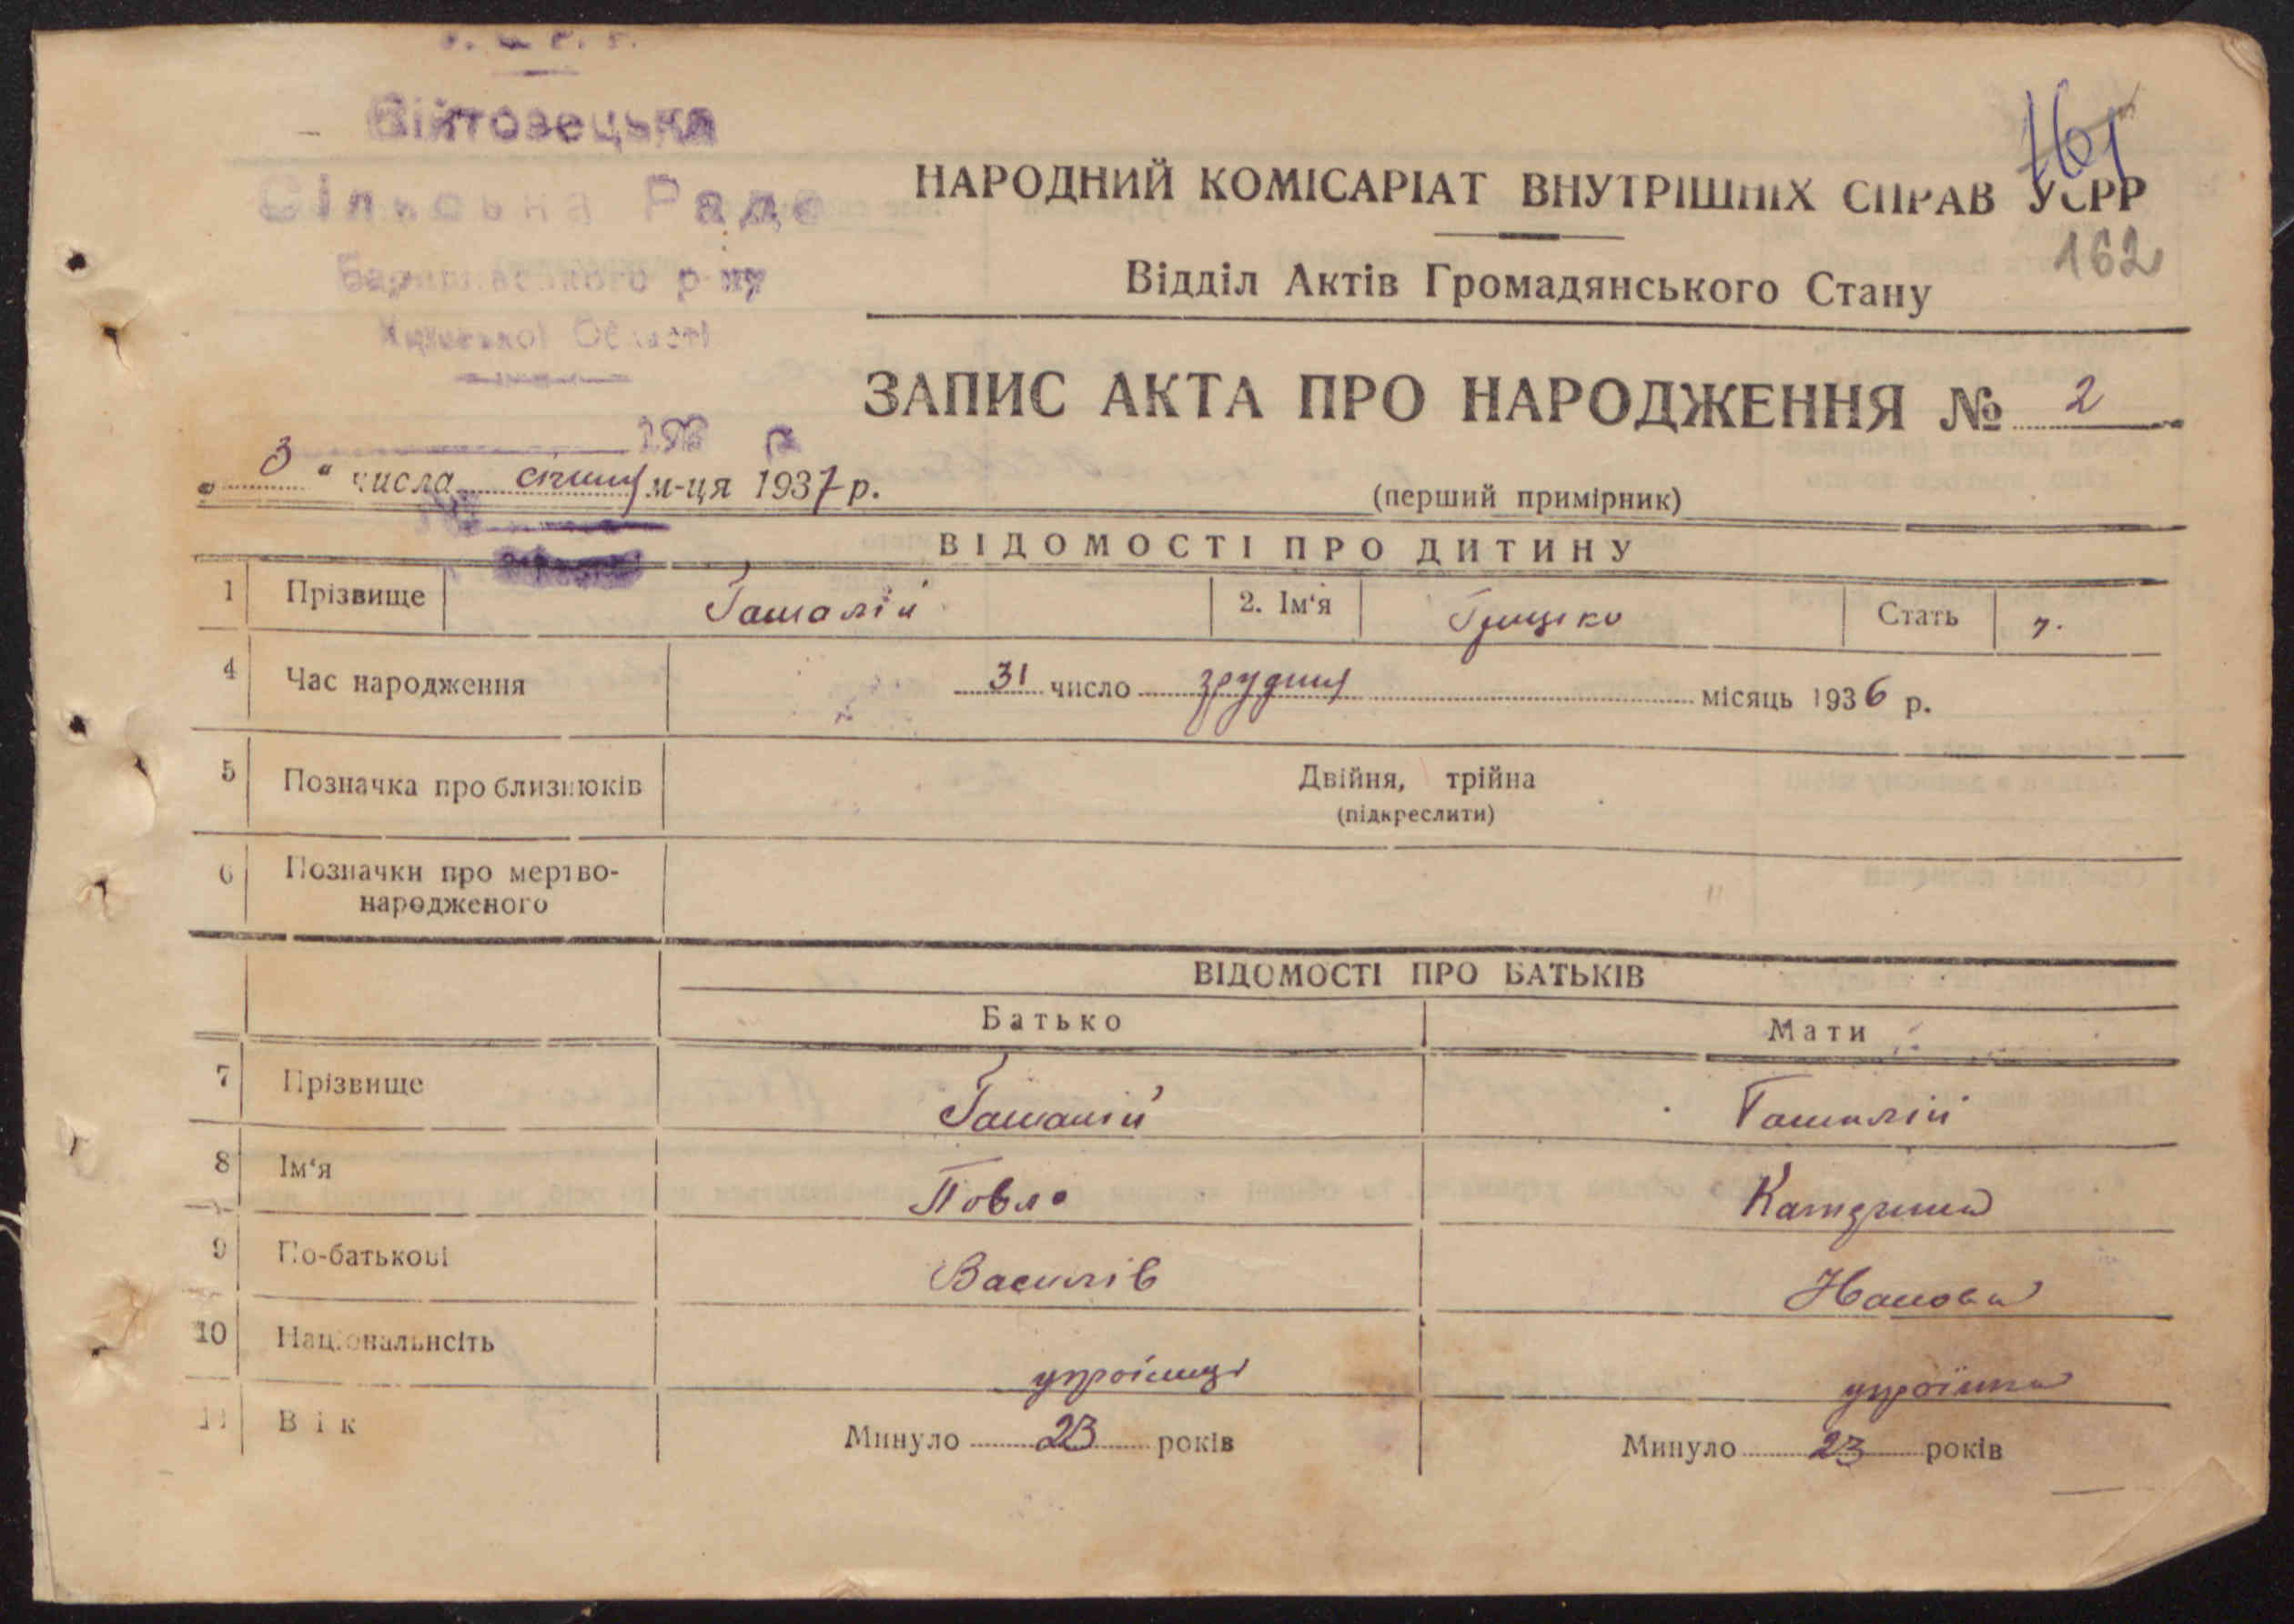 Війтовецька
Сільська Рада
Баришівського р-ну
Київської Області
161
НАРОДНИЙ КОМІСАРІАТ ВНУТРІШНІХ СПРАВ УСРР
162
Відділ Актів Громадянського Стану
ЗАПИС АКТА ПРО НАРОДЖЕННЯ № 2
„ 3 “ числа січня м-ця 1937 р.
(перший примірник)
ВІДОМОСТІ ПРО ДИТИНУ
1 Прізвище Гашалій 2. Ім‘я Грицько Стать ч.
4 Час народження 31 число грудня місяць 1936 р.
5 Позначка про близнюків Двійня, трійна
(підкреслити)
6 Позначки про мертво-
народженого
ВІДОМОСТІ ПРО БАТЬКІВ
Батько Мати
7 Прізвище Гашалій Гашалій
8 Ім‘я Павло Катерина
9 По-батькові Василів
10 Національнсіть українці українка
11 Вік Минуло 23 років Минуло 23 років